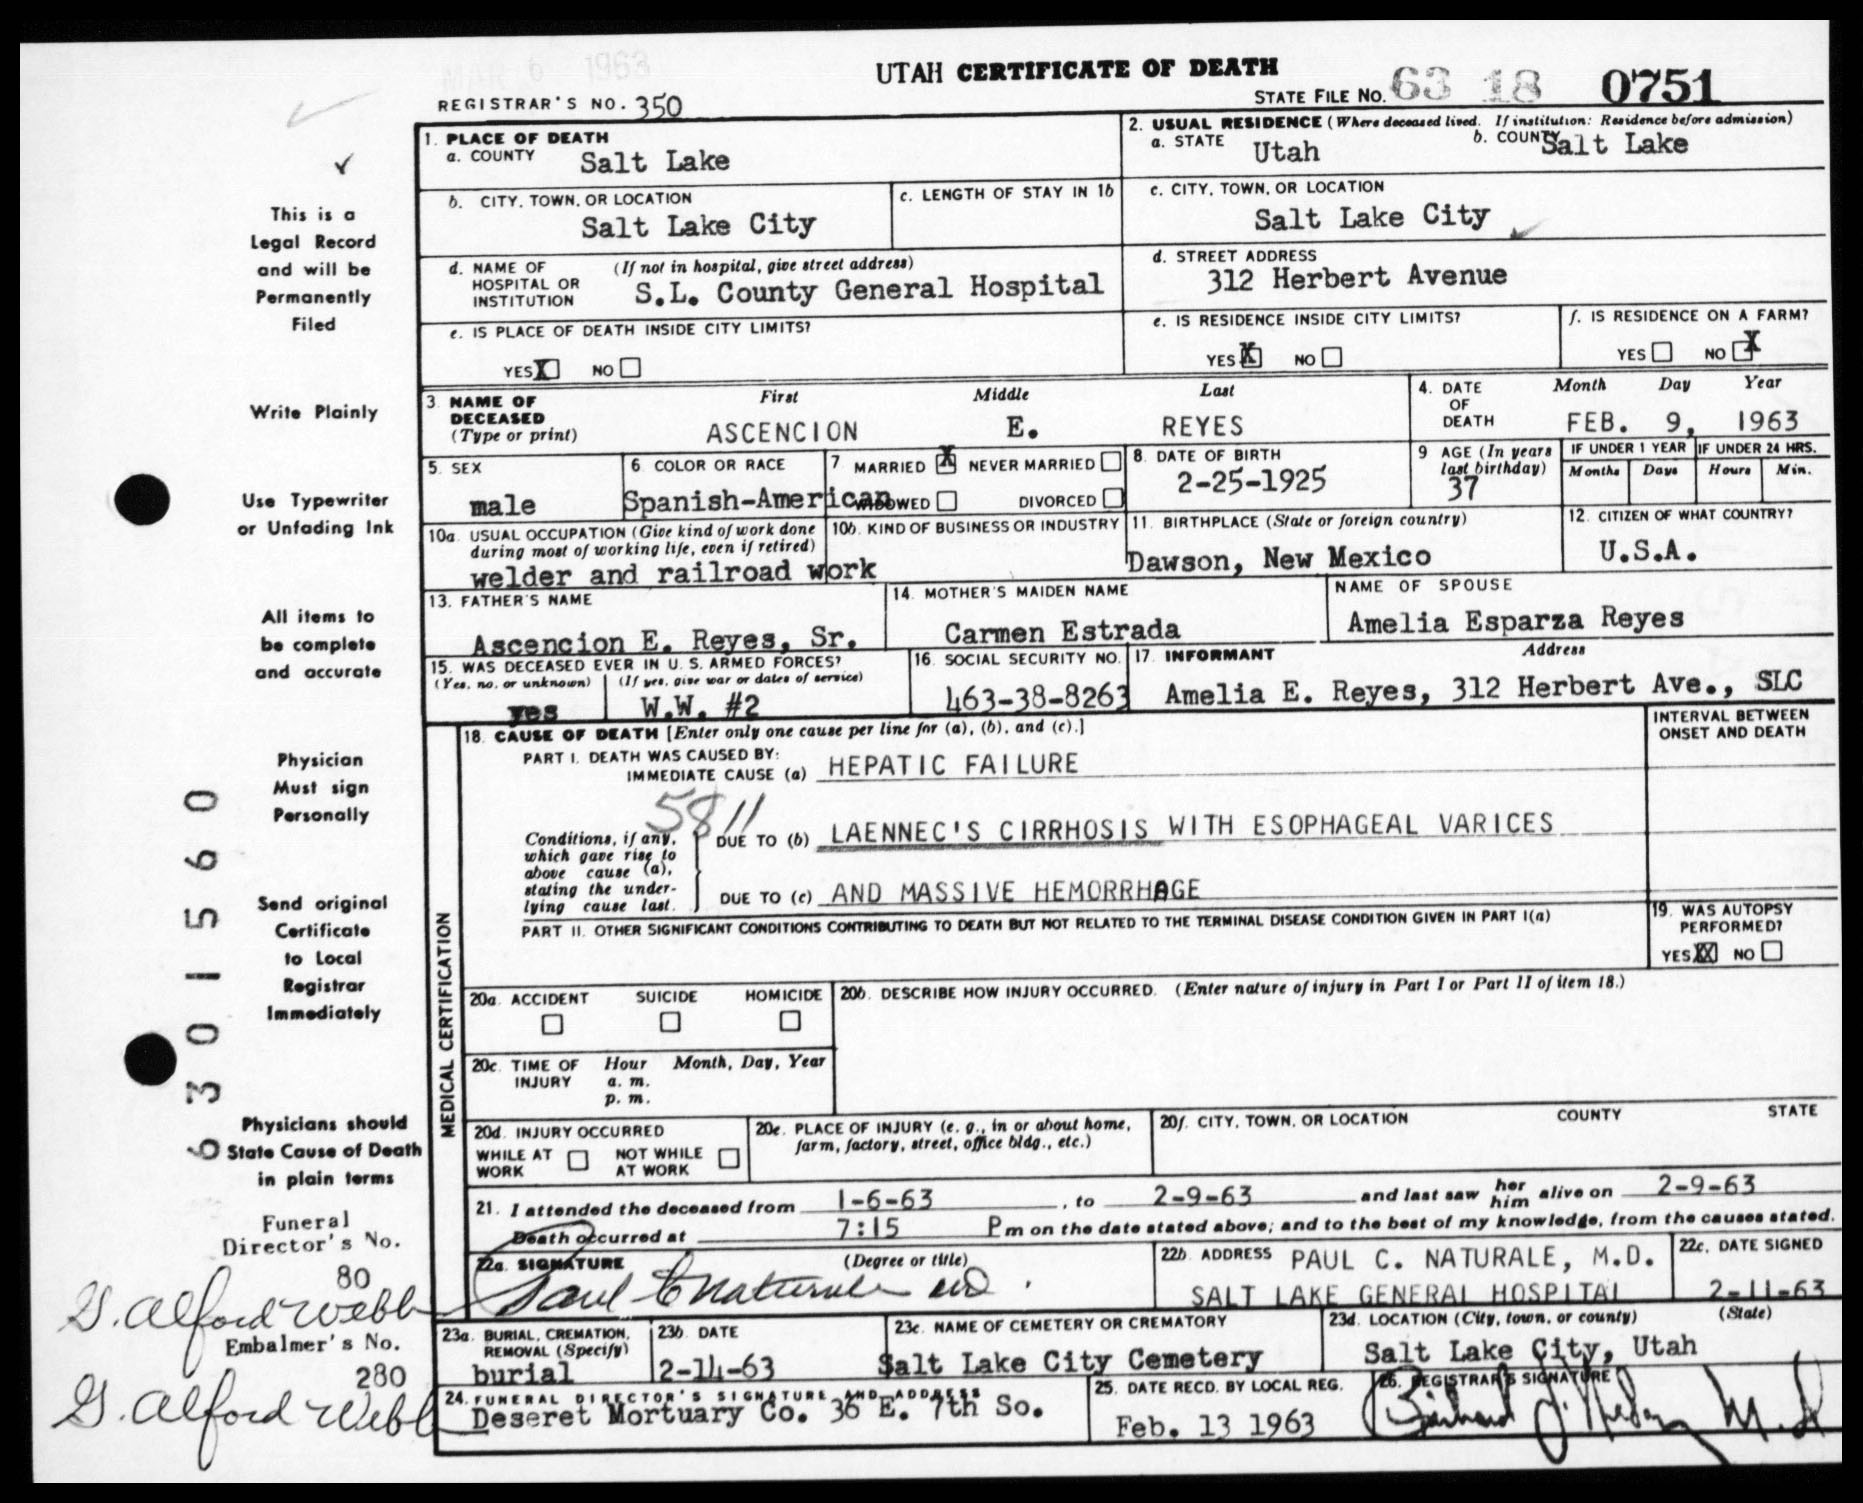 MAR 6 1963
UTAH CERTIFICATE OF DEATH
REGISTRAR'S NO. 350
STATE FILE NO. 63 18 0751
This is a
Legal Record
and will be
Permanently
Filed
Write Plainly
Use Typewriter
or Unfading Ink
All items to
be complete
and accurate
Physician
Must sign
Personally
Send original
Certificate
to Local
Registrar
Immediately
Physicians should
State Cause of Death
in plain terms
6301560
Funeral
Director's No.
80
G. Alford Webb
Embalmer's No.
280
G. Alford Webb
1. PLACE OF DEATH
a. COUNTY Salt Lake
b. CITY, TOWN, OR LOCATION
Salt Lake City
c. LENGTH OF STAY IN 1b
d. NAME OF HOSPITAL OR INSTITUTION (If not in hospital, give street address)
S.L. County General Hospital
e. IS PLACE OF DEATH INSIDE CITY LIMITS?
YES X NO
2. USUAL RESIDENCE (Where deceased lived. If institution: Residence before admission)
a. STATE Utah b. COUNTY Salt Lake
c. CITY, TOWN, OR LOCATION
Salt Lake City
d. STREET ADDRESS
312 Herbert Avenue
e. IS RESIDENCE INSIDE CITY LIMITS?
YES X NO
f. IS RESIDENCE ON A FARM?
YES NO X
3. NAME OF DECEASED (Type or print) First Middle Last
ASCENCION E. REYES
4. DATE OF DEATH Month Day Year
FEB. 9, 1963
5. SEX
male
6. COLOR OR RACE
Spanish-American
7. MARRIED X NEVER MARRIED
WIDOWED DIVORCED
8. DATE OF BIRTH
2-25-1925
9. AGE (In years last birthday)
37
IF UNDER 1 YEAR
Months Days
IF UNDER 24 HRS.
Hours Min.
10a. USUAL OCCUPATION (Give kind of work done during most of working life, even if retired)
welder and railroad work
10b. KIND OF BUSINESS OR INDUSTRY
11. BIRTHPLACE (State or foreign country)
Dawson, New Mexico
12. CITIZEN OF WHAT COUNTRY?
U.S.A.
13. FATHER'S NAME
Ascencion E. Reyes, Sr.
14. MOTHER'S MAIDEN NAME
Carmen Estrada
NAME OF SPOUSE
Amelia Esparza Reyes
15. WAS DECEASED EVER IN U. S. ARMED FORCES?
(Yes, no, or unknown) (If yes, give war or dates of service)
yes W.W. #2
16. SOCIAL SECURITY NO.
463-38-8263
17. INFORMANT Address
Amelia E. Reyes, 312 Herbert Ave., SLC
MEDICAL CERTIFICATION
18. CAUSE OF DEATH [Enter only one cause per line for (a), (b), and (c).]
INTERVAL BETWEEN ONSET AND DEATH
PART I. DEATH WAS CAUSED BY:
IMMEDIATE CAUSE (a) HEPATIC FAILURE
5811
Conditions, if any, which gave rise to above cause (a), stating the underlying cause last.
DUE TO (b) LAENNEC'S CIRRHOSIS WITH ESOPHAGEAL VARICES
DUE TO (c) AND MASSIVE HEMORRHAGE
PART II. OTHER SIGNIFICANT CONDITIONS CONTRIBUTING TO DEATH BUT NOT RELATED TO THE TERMINAL DISEASE CONDITION GIVEN IN PART I(a)
19. WAS AUTOPSY PERFORMED?
YES X NO
20a. ACCIDENT SUICIDE HOMICIDE
20b. DESCRIBE HOW INJURY OCCURRED. (Enter nature of injury in Part I or Part II of item 18.)
20c. TIME OF INJURY Hour Month, Day, Year
a. m.
p. m.
20d. INJURY OCCURRED
WHILE AT WORK NOT WHILE AT WORK
20e. PLACE OF INJURY (e. g., in or about home, farm, factory, street, office bldg., etc.)
20f. CITY, TOWN, OR LOCATION COUNTY STATE
21. I attended the deceased from 1-6-63, to 2-9-63 and last saw her him alive on 2-9-63
Death occurred at 7:15 Pm on the date stated above; and to the best of my knowledge, from the causes stated.
22a. SIGNATURE (Degree or title)
Paul C Naturale MD.
22b. ADDRESS PAUL C. NATURALE, M.D.
SALT LAKE GENERAL HOSPITAL
22c. DATE SIGNED
2-11-63
23a. BURIAL, CREMATION, REMOVAL (Specify)
burial
23b. DATE
2-14-63
23c. NAME OF CEMETERY OR CREMATORY
Salt Lake City Cemetery
23d. LOCATION (City, town, or county) (State)
Salt Lake City, Utah
24. FUNERAL DIRECTOR'S SIGNATURE AND ADDRESS
Deseret Mortuary Co. 36 E. 7th So.
25. DATE RECD. BY LOCAL REG.
Feb. 13 1963
26. REGISTRAR'S SIGNATURE